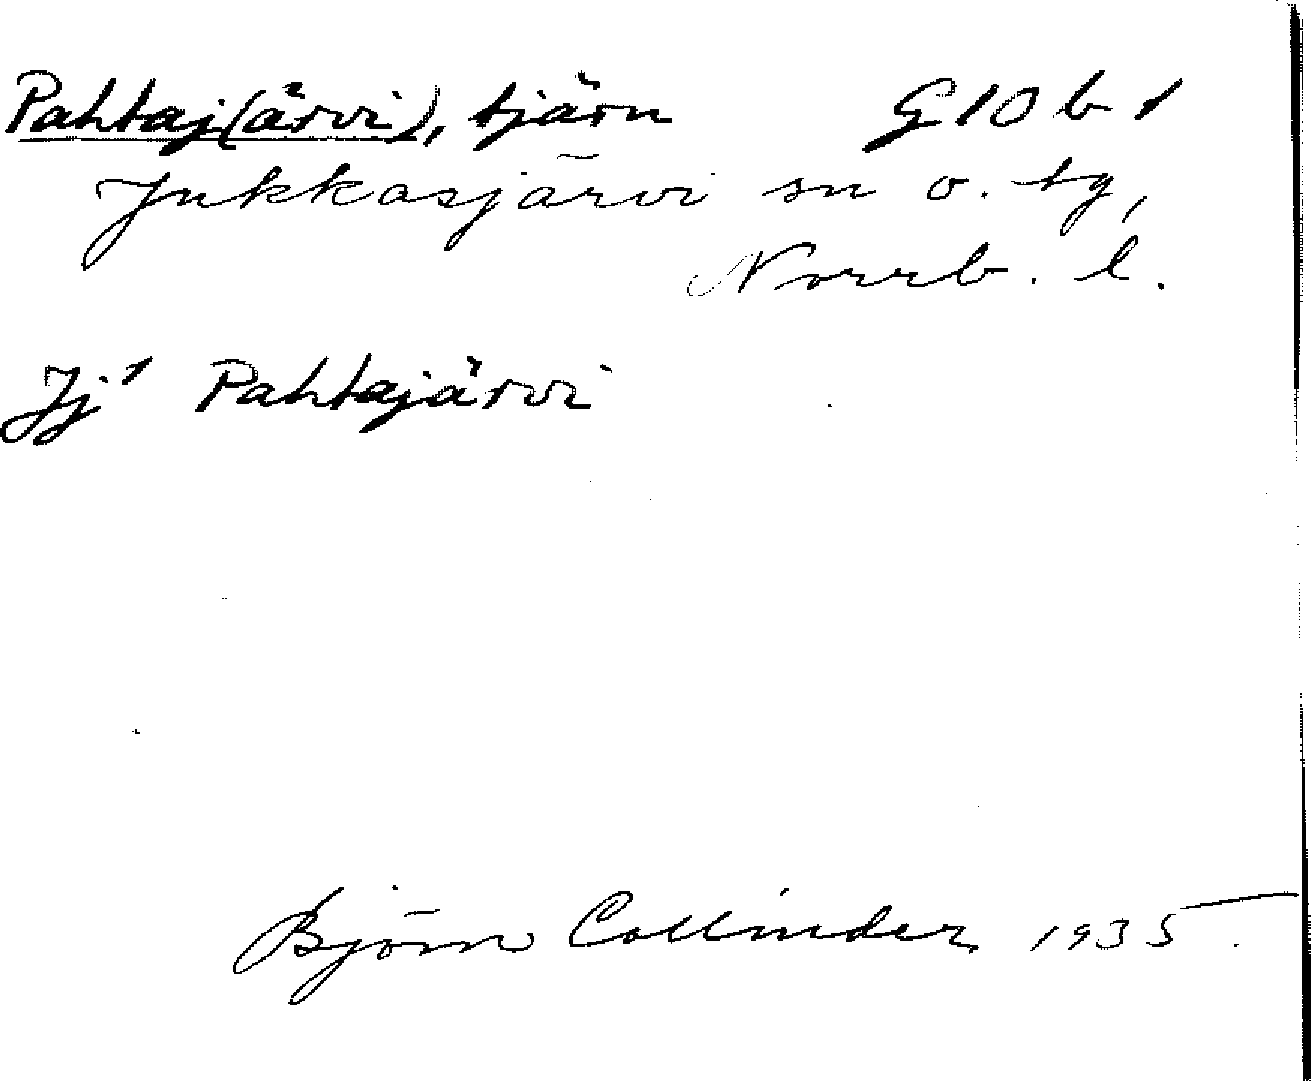 Pahtaj(ärvi), tjärn G 10 b 1
Jukkasjärvi sn o. tg,
Norrb. l.
Jj¹ Pahtajärvi
Björn Collinder 1935.